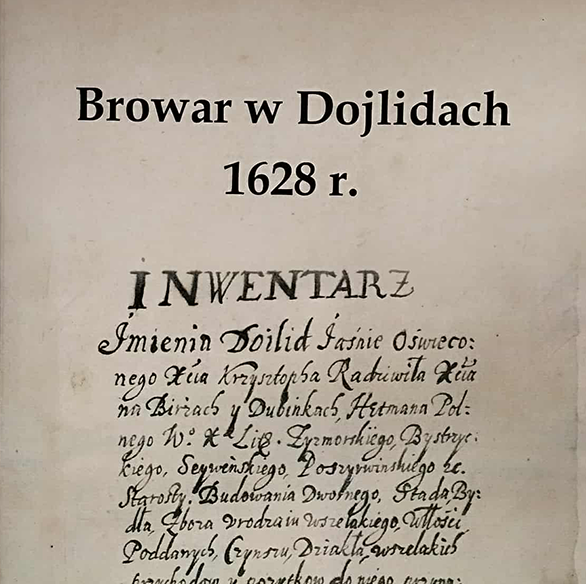 Browar w Dojlidach
1628 r.
INWENTARZ
Jmienia Doilid Jaśnie Oświeco:
nego Xcia Krzysztopha Radziwiła Xcia
na Birżach y Dubinkach, Hetmana Pol:
nego Wº. Xª Lit. Żyzmorskiego, Bystrzyc:
kiego, Seywenskiego, Poszyrwinskiego &c.
Starosty. Budowania Dwornego, Stada By:
dła, Zboza vrodzaiu wszelakiego, Włości,
Poddanych, Czynszu, Dziakła, wszelakich
przychodow y pozytkow do niego